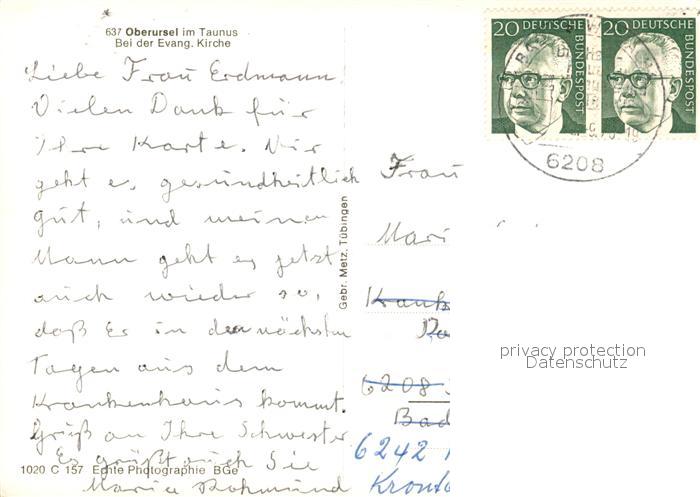 637 Oberursel im Taunus
Bei der Evang. Kirche
Liebe Frau Erdmann
Vielen Dank für
Ihre Karte. Mir
geht es gesundheitlich
gut, und meinem
Mann geht es jetzt
auch wieder so,
daß Er in den nächsten
Tagen aus dem
Krankenhaus kommt.
Grüß an Ihre Schwester
Es grüßt auch Sie
Maria
1020 C 157 Echte Photographie BGe
Gebr. Metz, Tübingen
20 DEUTSCHE BUNDESPOST
20 DEUTSCHE BUNDESPOST
6208
Frau
Mari
Krank
6208
Bad
6242
Kronb
privacy protection
Datenschutz